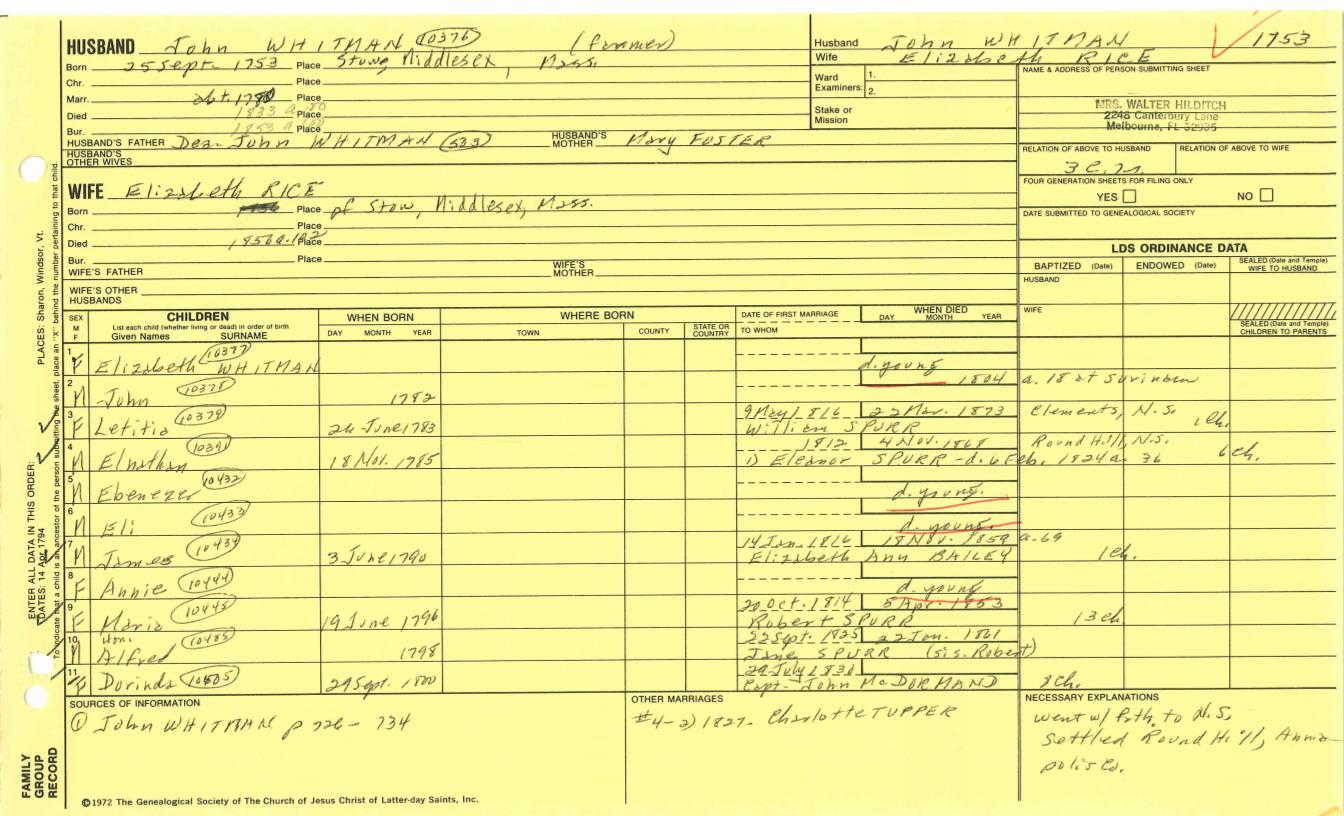 HUSBAND John WHITMAN (10376) (farmer)
Born 25 Sept. 1753 Place Stow, Middlesex, Mass.
Chr. Place
Marr. abt. 1780 Place
Died 1833 a. 80 Place
Bur. Place
HUSBAND'S FATHER Dea. John WHITMAN (533) HUSBAND'S MOTHER Mary FOSTER
HUSBAND'S OTHER WIVES
WIFE Elizabeth RICE
Born Place of Stow, Middlesex, Mass.
Chr. Place
Died 1856 a. 102 Place
Bur. Place
WIFE'S FATHER WIFE'S MOTHER
WIFE'S OTHER HUSBANDS
Husband John WHITMAN 1753
Wife Elizabeth RICE
Ward Examiners: 1.
2.
Stake or Mission
NAME & ADDRESS OF PERSON SUBMITTING SHEET
MRS. WALTER HILDITCH
2248 Canterbury Lane
Melbourne, FL 32935
RELATION OF ABOVE TO HUSBAND RELATION OF ABOVE TO WIFE
3 C.
FOUR GENERATION SHEETS FOR FILING ONLY
YES NO
DATE SUBMITTED TO GENEALOGICAL SOCIETY
LDS ORDINANCE DATA
BAPTIZED (Date) ENDOWED (Date) SEALED (Date and Temple) WIFE TO HUSBAND
HUSBAND
WIFE
SEALED (Date and Temple) CHILDREN TO PARENTS
SEX M F CHILDREN WHEN BORN WHERE BORN DATE OF FIRST MARRIAGE WHEN DIED
List each child (whether living or dead) in order of birth
Given Names SURNAME DAY MONTH YEAR TOWN COUNTY STATE OR COUNTRY TO WHOM DAY MONTH YEAR
1 F Elizabeth WHITMAN (10377) d. young
2 M John (10378) 1782 1804 a. 18 at Surinam
3 F Letitia (10379) 26 June 1783 9 May 1816 22 Mar. 1873 Clements, N.S.
William SPURR 1 Ch.
4 M Elnathan (10391) 18 Nov. 1785 1812 4 Nov. 1868 Round Hill, N.S.
1) Eleanor SPURR - d. 6 Feb. 1824 a. 36 6 ch.
5 M Ebenezer (10432) d. young.
6 M Eli (10433) d. young.
7 M James (10434) 3 June 1790 14 Jan. 1816 18 Nov. 1859 a. 69
Elizabeth Ann BAILEY 1 ch.
8 F Annie (10444) d. young
9 F Maria (10445) 19 June 1796 20 Oct. 1814 5 Apr. 1853
Robert SPURR 13 ch
10 M Hon. Alfred (10485) 1798 22 Sept. 1825 22 Jan. 1861
Jane SPURR (sis. Robert)
11 F Dorinda (10505) 29 Sept. 1800 29 July 1830
Capt. John McDORMAND
SOURCES OF INFORMATION
① John WHITMAN p 726 - 734
OTHER MARRIAGES
#4-2) 1827 - Charlotte TUPPER
NECESSARY EXPLANATIONS
went w/ fath. to N.S.
settled Round Hill, Anna-
polis Co.
©1972 The Genealogical Society of The Church of Jesus Christ of Latter-day Saints, Inc.
FAMILY GROUP RECORD
ENTER ALL DATA IN THIS ORDER:
DATES: 14 Apr 1794
PLACES: Sharon, Windsor, Vt.
To indicate that a child is an ancestor of the person submitting the sheet, place an "X" behind the number pertaining to that child.